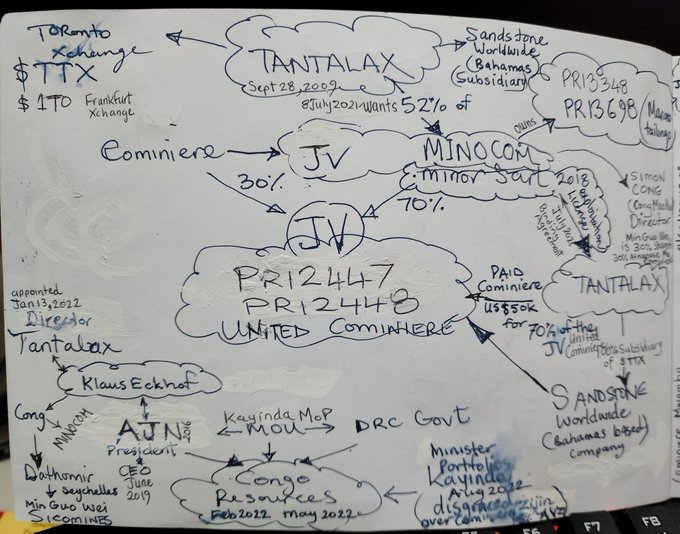 Toronto
Xchange
$TTX
$1TO Frankfurt
Xchange
TANTALAX
Sept 28, 2009
8July2021-wants 52% of
Sandstone
Worldwide
(Bahamas
Subsidiary)
PR13348
PR13698
owns
Cominiere
JV
MINOCOM
minor Sarl
30%
70%
2018
exploitation
License
July 2021
Binding
Agreement
SIMON
CONG
(Cong Mao Huai)
Director
Min Guo Wei
is 30% Share
JV
PR12447
PR12448
UNITED COMINIERE
PAID
Cominiere
US$50k
for
70% of the
JV United
Cominiere
TANTALAX
100% Subsidiary
of $TTX
SANDSTONE
Worldwide
(Bahamas based)
Company
appointed
Jan 13, 2022
Director
Tantalax
Klaus Eckhof
Cong
MINOCOM
AJN 2016
President
CEO
June
2019
Kayinda MoP
MOU
DRC Govt
Dathomir
Seychelles
Min Guo Wei
SICOMINES
Congo
Resources
Feb2022 may 2022
Minister
Portfolios
Kayinda
Aug 2022
disgraced
over Cominiere
Zijin
AVZ
F7
F8